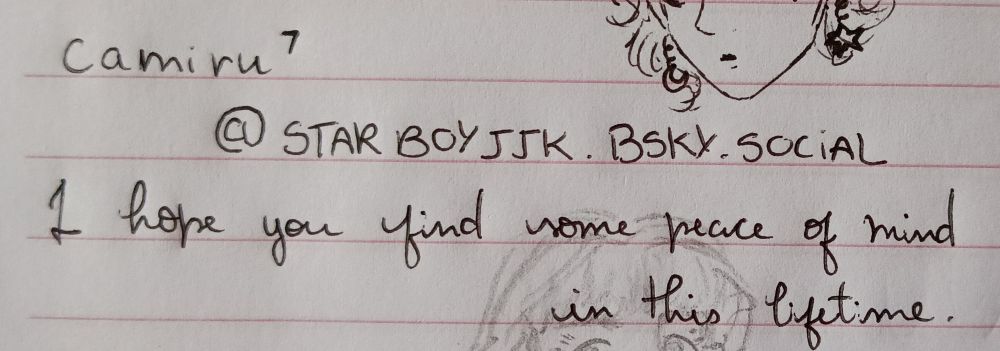 Camiru⁷
@STARBOYJJK.BSKY.SOCiAL
I hope you find some peace of mind
in this lifetime.